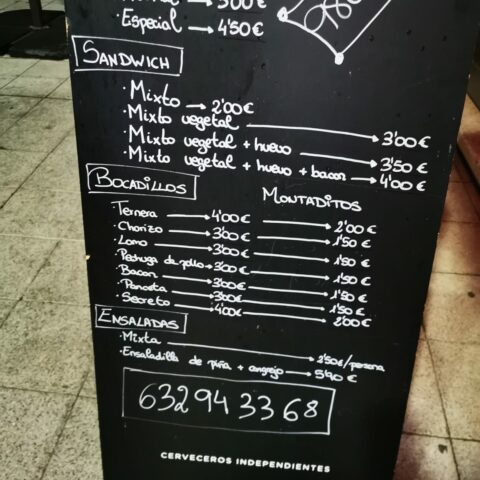 → 3'00€
· Especial → 4'50€
SANDWICH
· Mixto → 2'00€
· Mixto vegetal → 3'00€
· Mixto vegetal + huevo → 3'50€
· Mixto vegetal + huevo + bacon → 4'00€
BOCADILLOS MONTADITOS
· Ternera → 4'00€ → 2'00€
· Chorizo → 3'00€ → 1'50€
· Lomo → 3'00€ → 1'50€
· Pechuga de pollo → 3'00€ → 1'50€
· Bacon → 3'00€ → 1'50€
· Panceta → 3'00€ → 1'50€
· Secreto → 4'00€ → 2'00€
ENSALADAS
· Mixta → 2'50€/persona
· Ensaladilla de piña + cangrejo → 5'90€
632 94 33 68
CERVECEROS INDEPENDIENTES